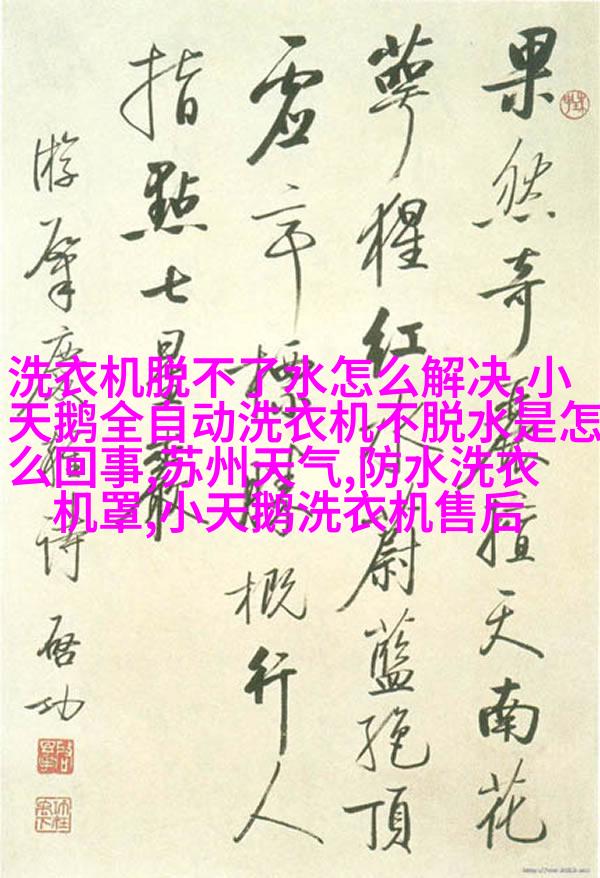 果然奇擅天南花
萼猩红水蔚藍絕頂
虚亭勝概行人
指點七星巖
游肇慶詩 啓功
洗衣机脱不了水怎么解决,小
天鹅全自动洗衣机不脱水是怎
么回事,苏州天气,防水洗衣
机罩,小天鹅洗衣机售后